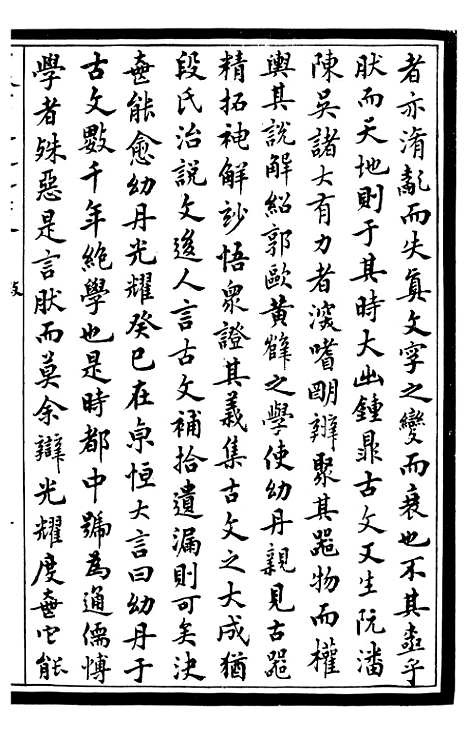 者亦淆亂而失真文字之變而衰也不其盡乎
肰而天地則于其時大出鍾鼎古文又生阮潘
陳吳諸大有力者深嗜朙辨聚其器物而權
輿其說解紹郭歐黃薛之學使幼丹親見古器
精拓神解妙悟眾證其義集古文之大成猶
段氏治說文後人言古文補拾遺漏則可矣決
能愈幼丹光耀癸巳在京恒大言曰幼丹于
古文數千年絕學也是時都中號為通儒博
學者殊惡是言肰而莫余辯光耀度能